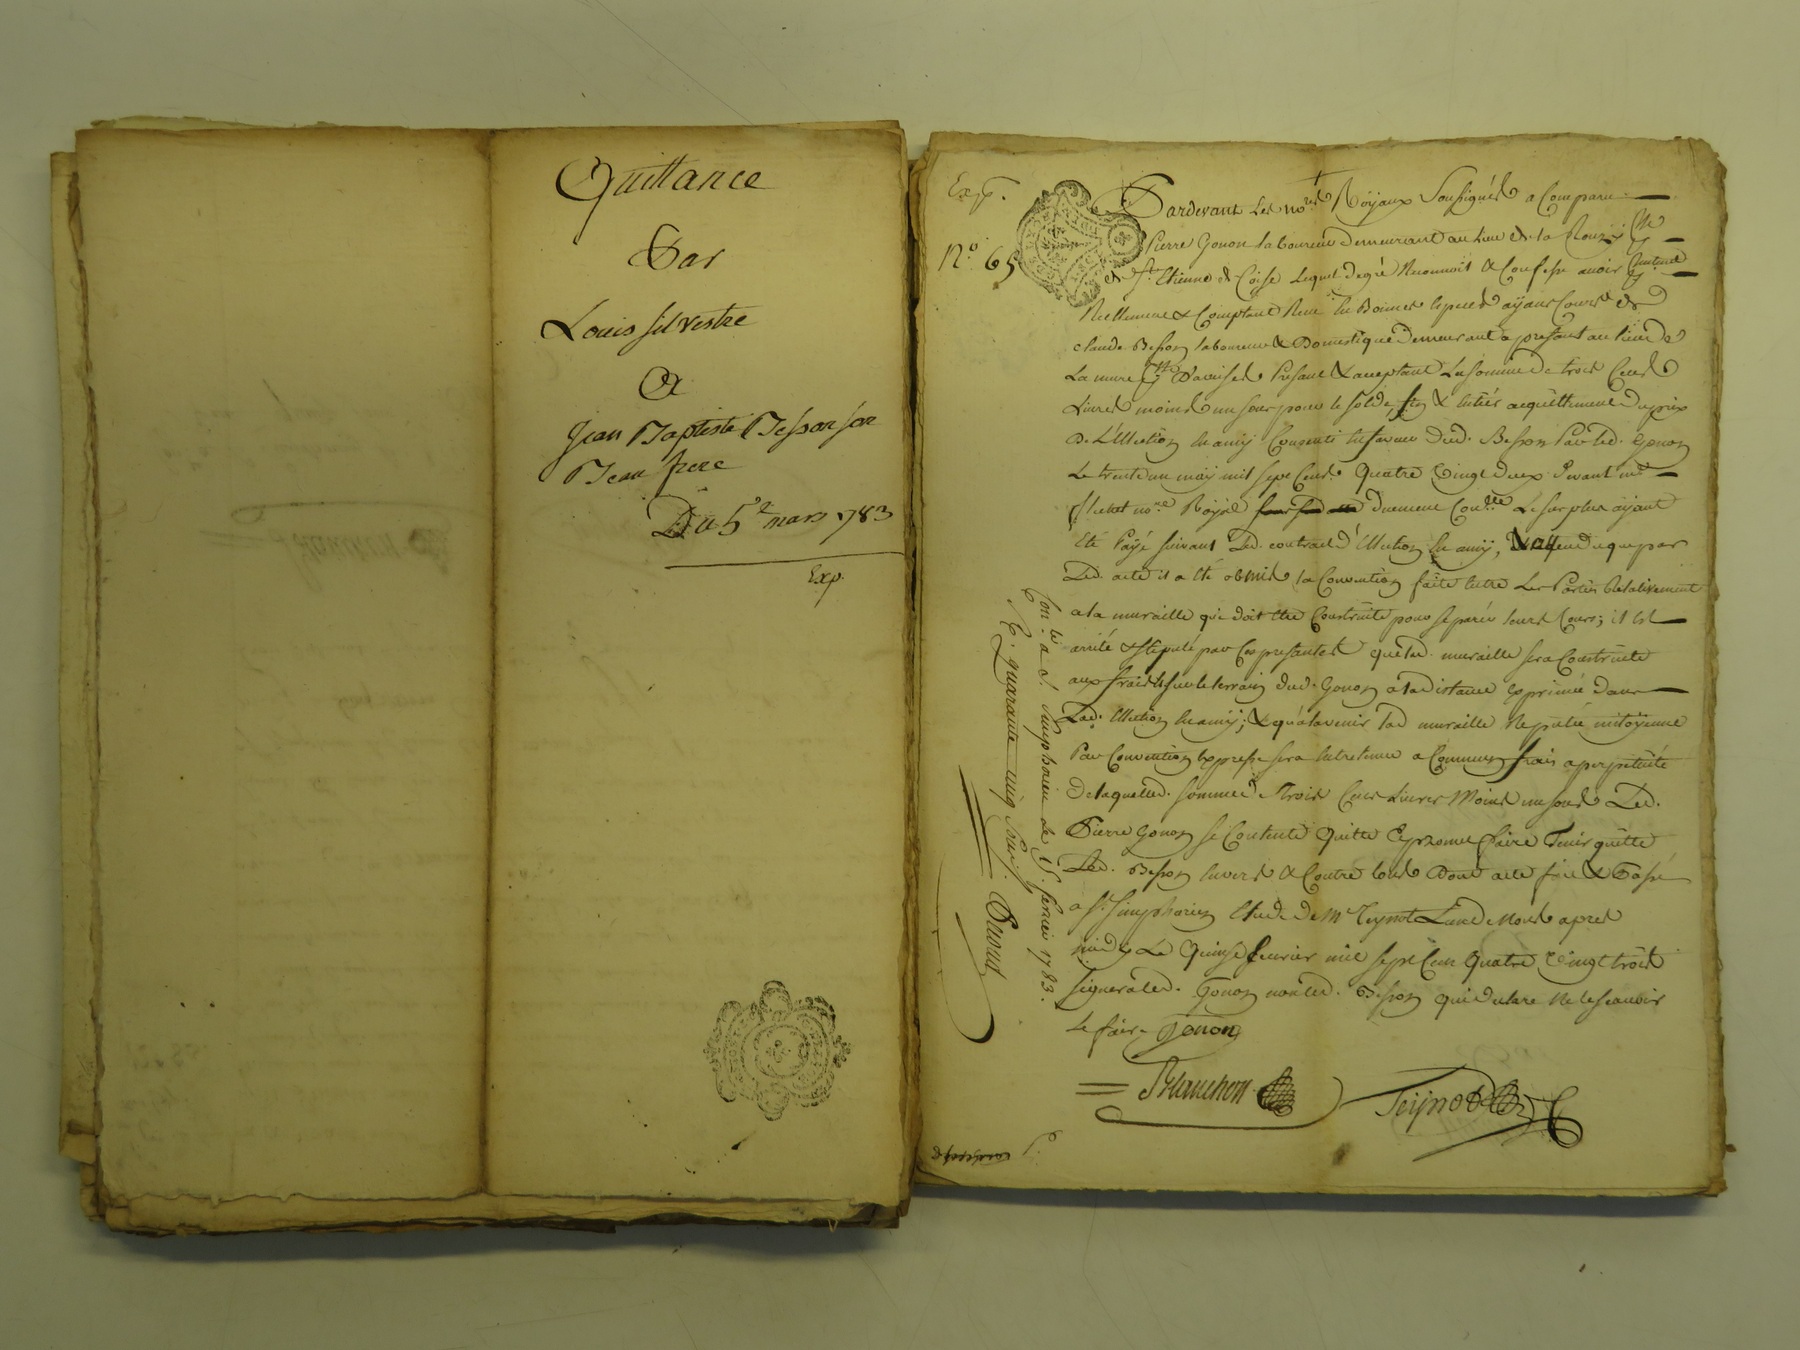 Quittance
Par
Louis silvestre
A
Jean Baptiste Besson son
Beau frere
Du 5e mars 1783
Exp.
Exp.
No. 65
Pardevant Les nores Royaux Soussignés a Comparu
Pierre Gonon laboureur demeurant au lieu de la
de St. Etienne de Coise Lequel de gré Reconnoit & Confesse avoir
Reellement & Comptant Reçu en Bonnes especes ayans Cours de
claude Besson laboureur & Domestique demeurant a present au lieu de
La mure D'aveises Present & acceptant La somme de trois Cent
Livres moins un sous pour le solde, fin & entier acquittement du prix
De L'Election en amy Consenti en faveur dud. Besson Par led. Gonon
Le trente un may mil sept Cent Quatre Vingt deux Devant me
nore Royal duement Conllé Le surplus ayant
Eté Payé suivant Led. contract d'Election en amy, & attendu que par
Led. acte il a été obmis la Convention faite entre Les Parties Relativement
a la muraille qui doit etre Construite pour separer leurs Cours; il est
arrêté & stipulé par Ces presentes que lad. muraille sera Construite
aux frais & sur le terrain dud. Gonon a la distance exprimée dans
Lad. Election en amy; & qu'a l'avenir lad muraille Reputée mitoyenne
Par Convention Expresse sera Entretenue a Communs frais a perpétuité
de laquelle somme de trois Cens Livres Moins un sous Led.
Pierre Gonon se Contente Quitte & promet faire Tenir quitte
Led. Besson Envers & Contre tous Dont acte fait & Passé
a St. Simphorien Etude de Me Teynot L'un de Nous apres
midy Le Quinze fevrier mil sept Cent Quatre Vingt trois
signera led. Gonon non led. Besson qui declare ne le scavoir
le faire Gonon
Blanchon Teynot
Con. lé a St. Simphorien le fevrier 1783.
R. quarante cinq sous.